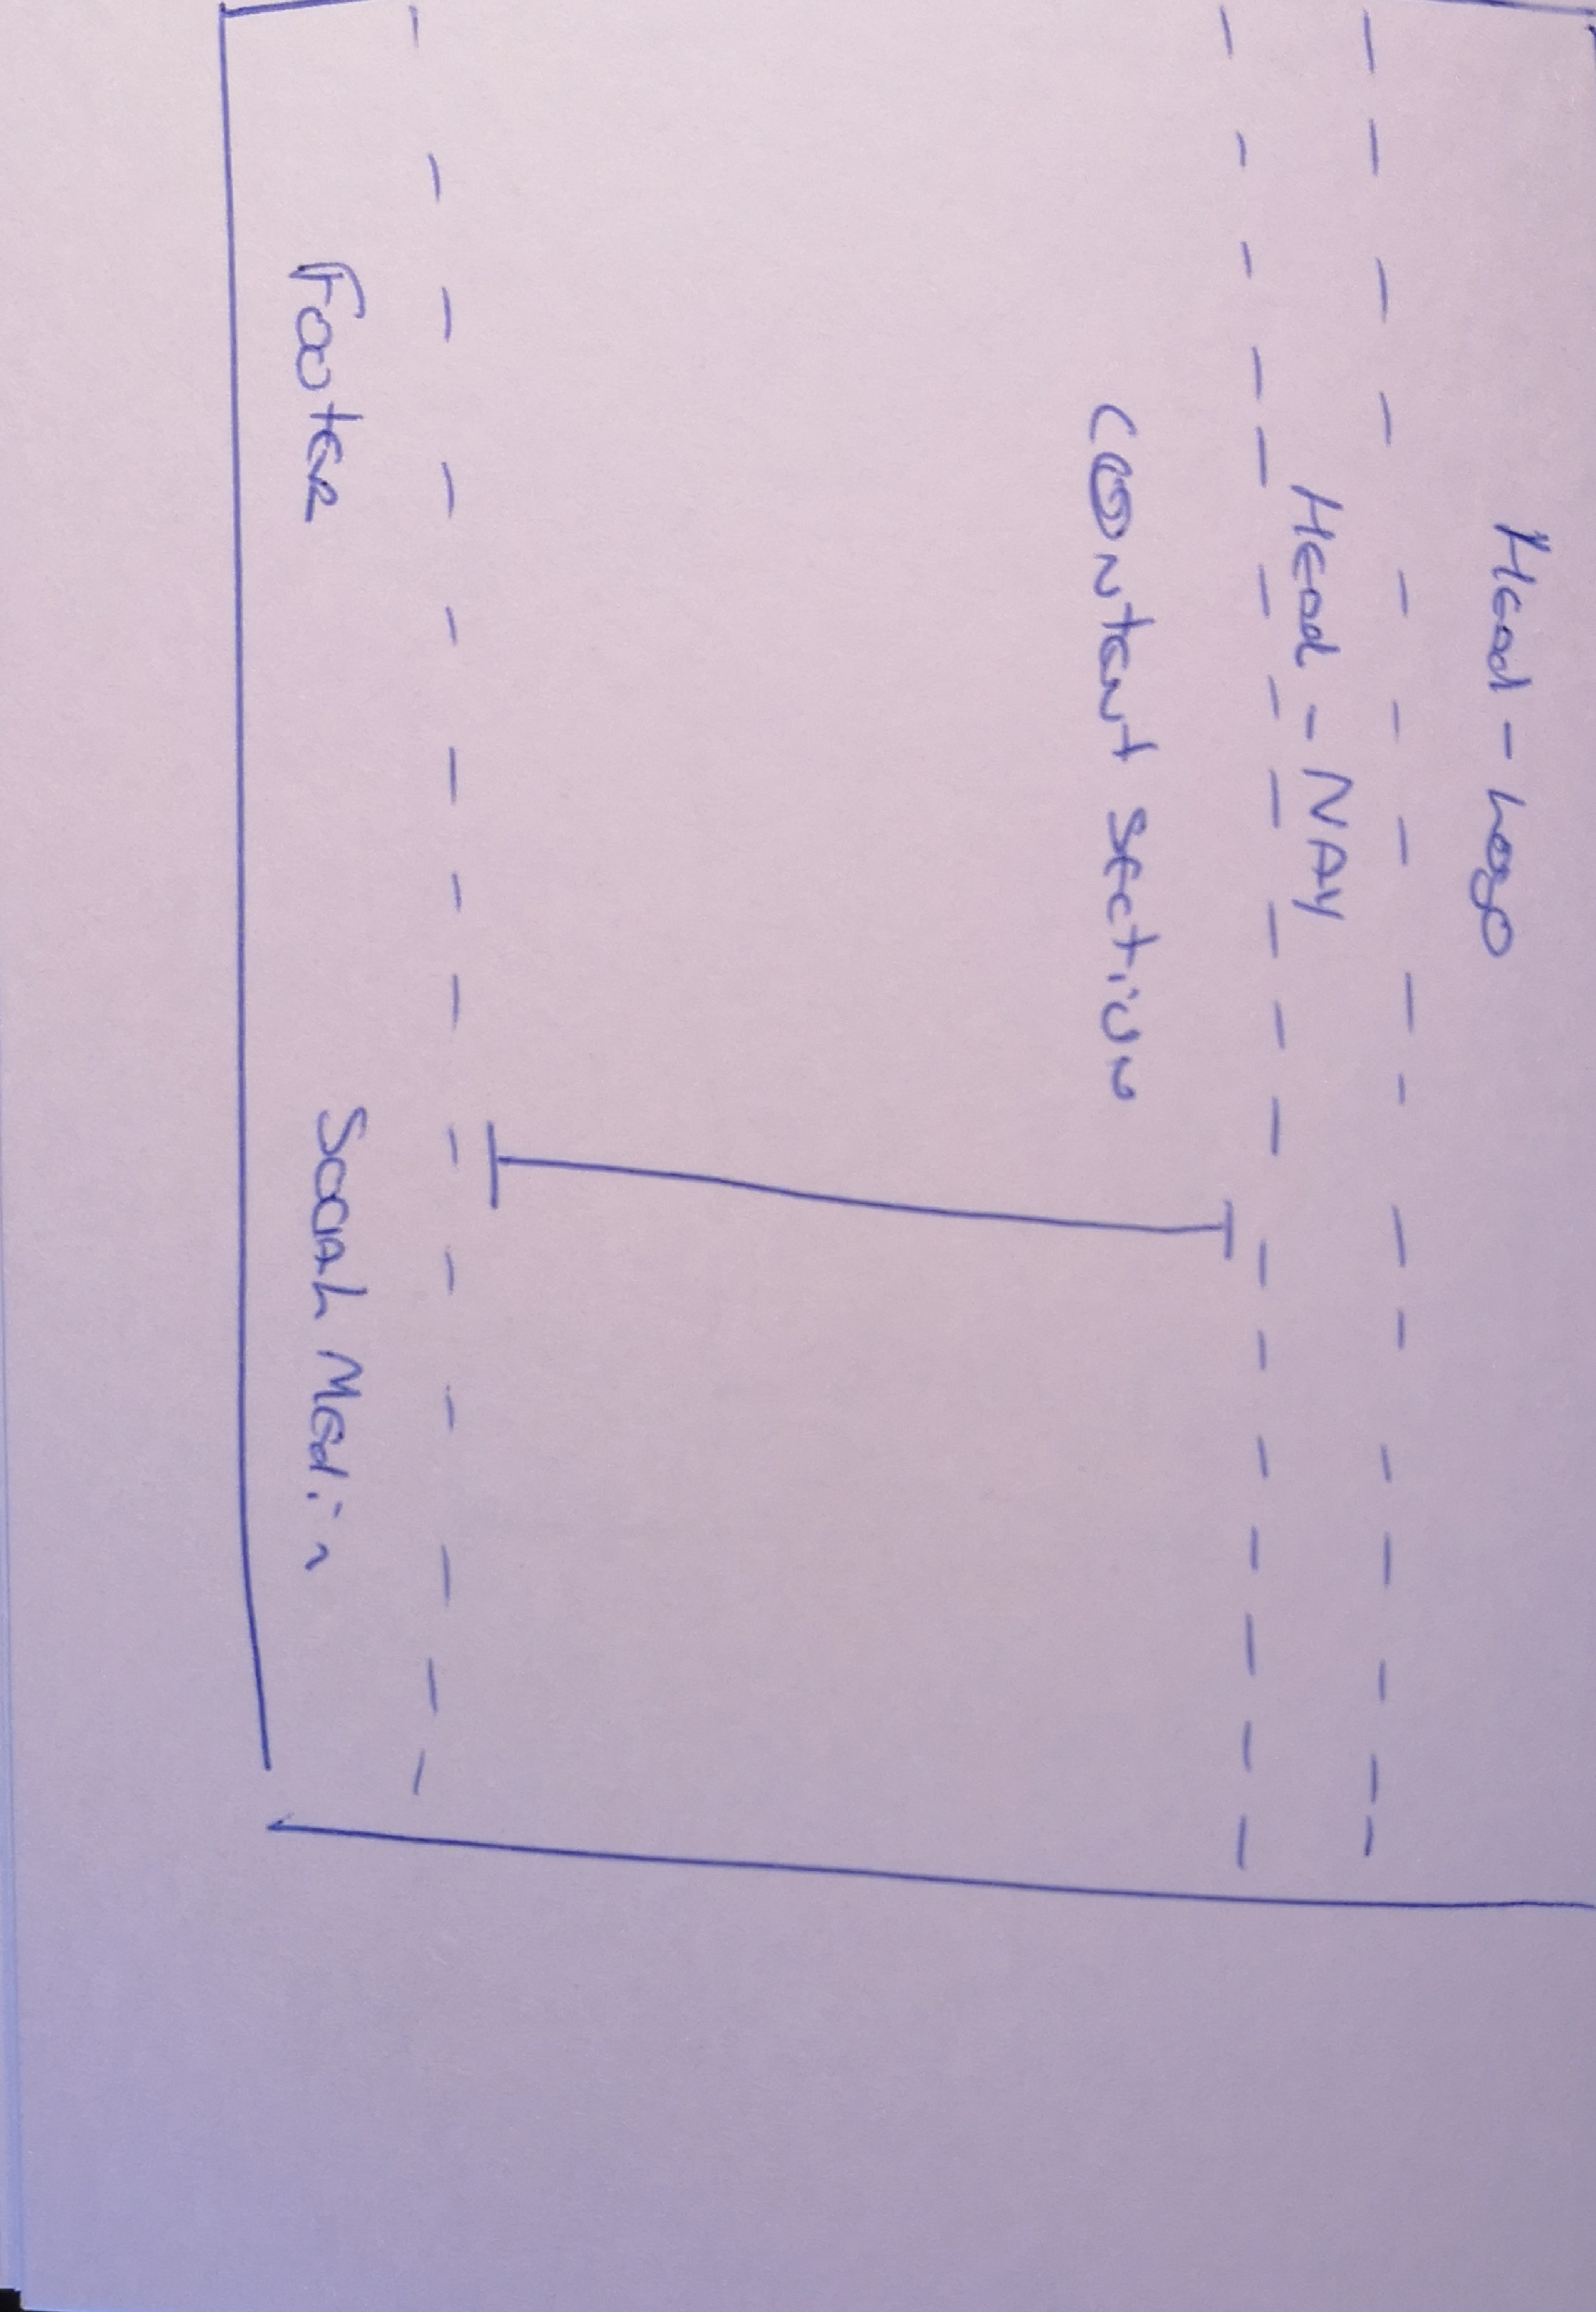 Head - Logo
Head - NAV
Content Section
Footer Social Media